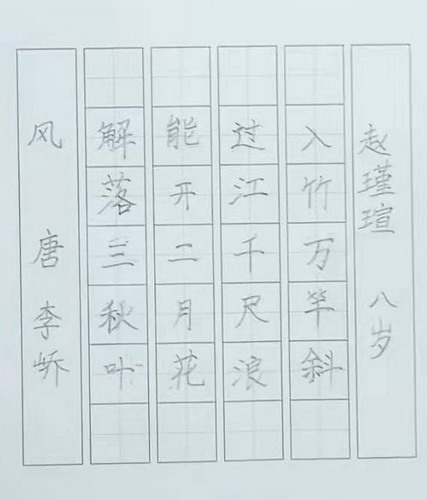 风 唐 李峤
解落三秋叶
能开二月花
过江千尺浪
入竹万竿斜
赵瑾瑄 八岁